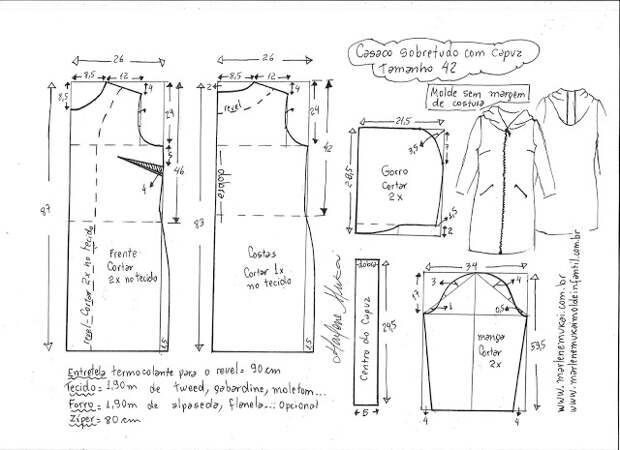 Casaco Sobretudo com Capuz
Tamanho 42
Molde sem margem
de costura
26
8,5
12
8,5
4
24
5
46
4
87
revel-Cortar 2x no tecido
Frente
Cortar
2x no tecido
1,5
26
8,5
12
2
4
24
42
revel
dobra
83
Costas
Cortar 1x
no tecido
1,5
21,5
3,5
7
28,5
Gorro
Cortar
2x
1,5
2
dobra
Centro do Capuz
29,5
5
Marlene Mukai
34
3
4
1
0,5
manga
Cortar
2x
59,5
4
4
www.marlenemukai.com.br
www.marlenemukaimoldeinfantil.com.br
Entretela termocolante para o revel= 90cm
Tecido= 1,90m de tweed, gabardine, moletom...
Forro= 1,90m de alpaseda, flanela... Opcional
Zíper= 80cm